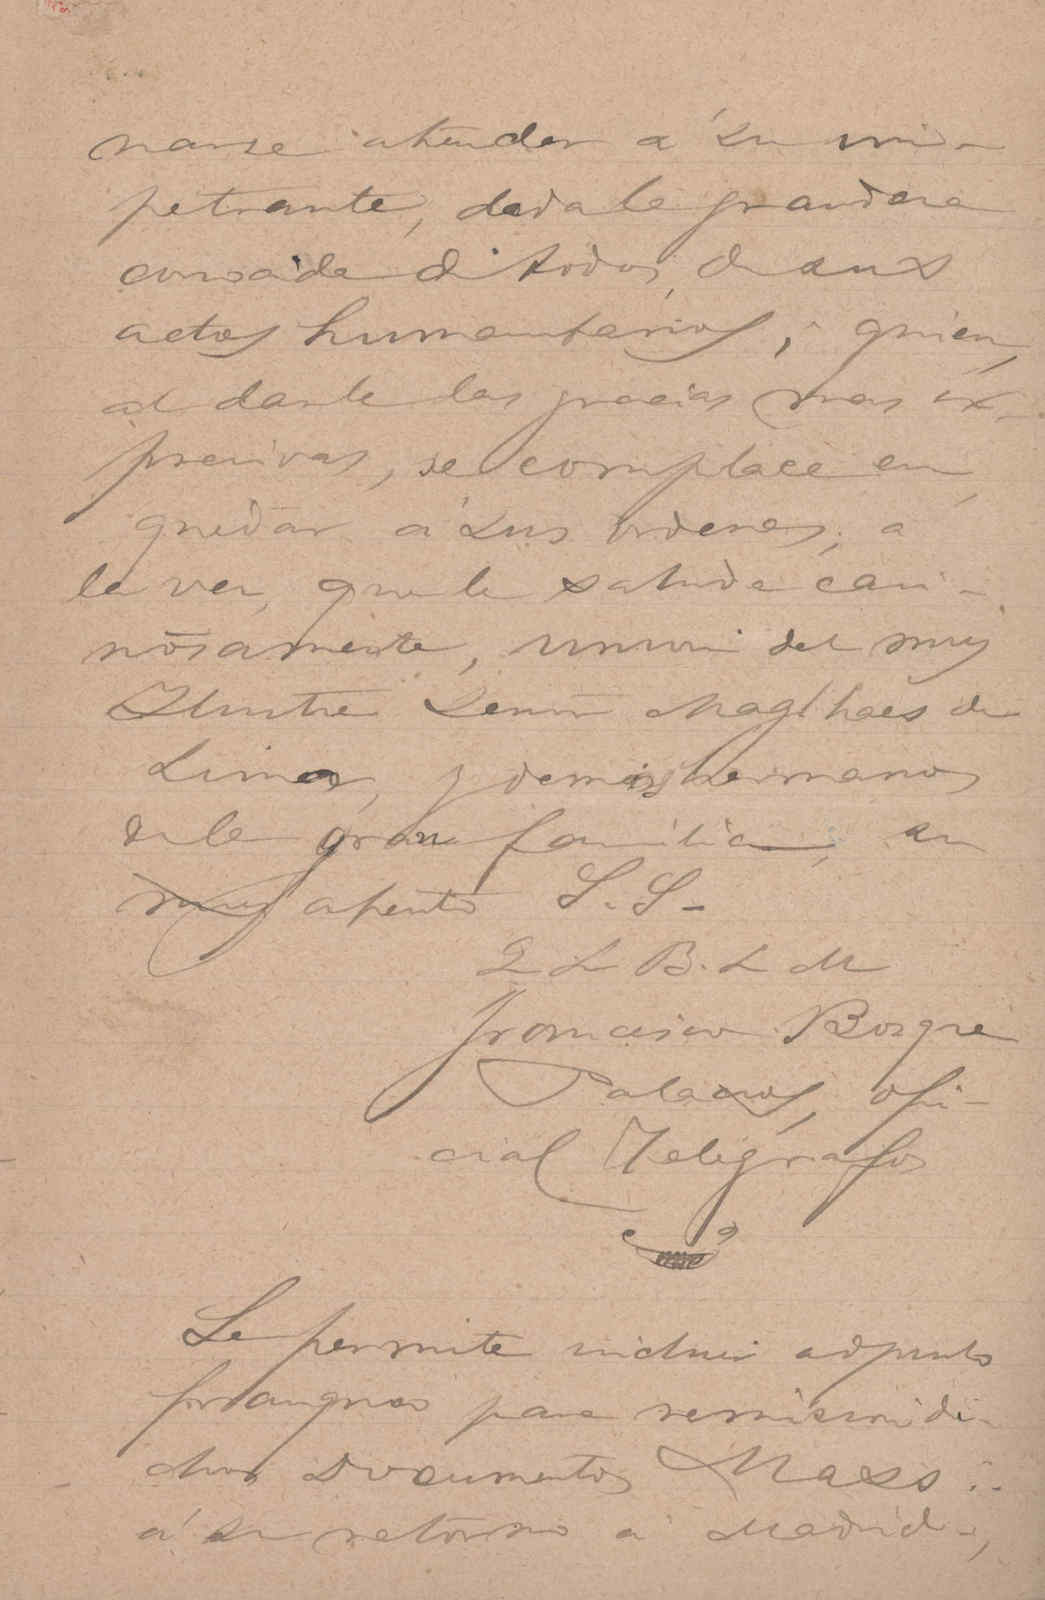 narse atender a su im-
petrante, dada la grandeza
conocida di todos, de sus
actos humanitarios, quien,
al darle las gracias mas ex-
presivas, se complace en
quedar á sus ordenes, a
la vez, que le saluda cari-
ñosamente, del muy
Ilustre Señor Maglhaes de
Lima, y demas hermanos
de la gran familia, su
muy atento S. S.-
Q L B. L M
Francisco Bosque
Palacios, ofi-
cial Telégrafos
Se permite incluir adjunto
franqueo para remision di-
chos documentos Mass∴
á su retorno a Madrid-,